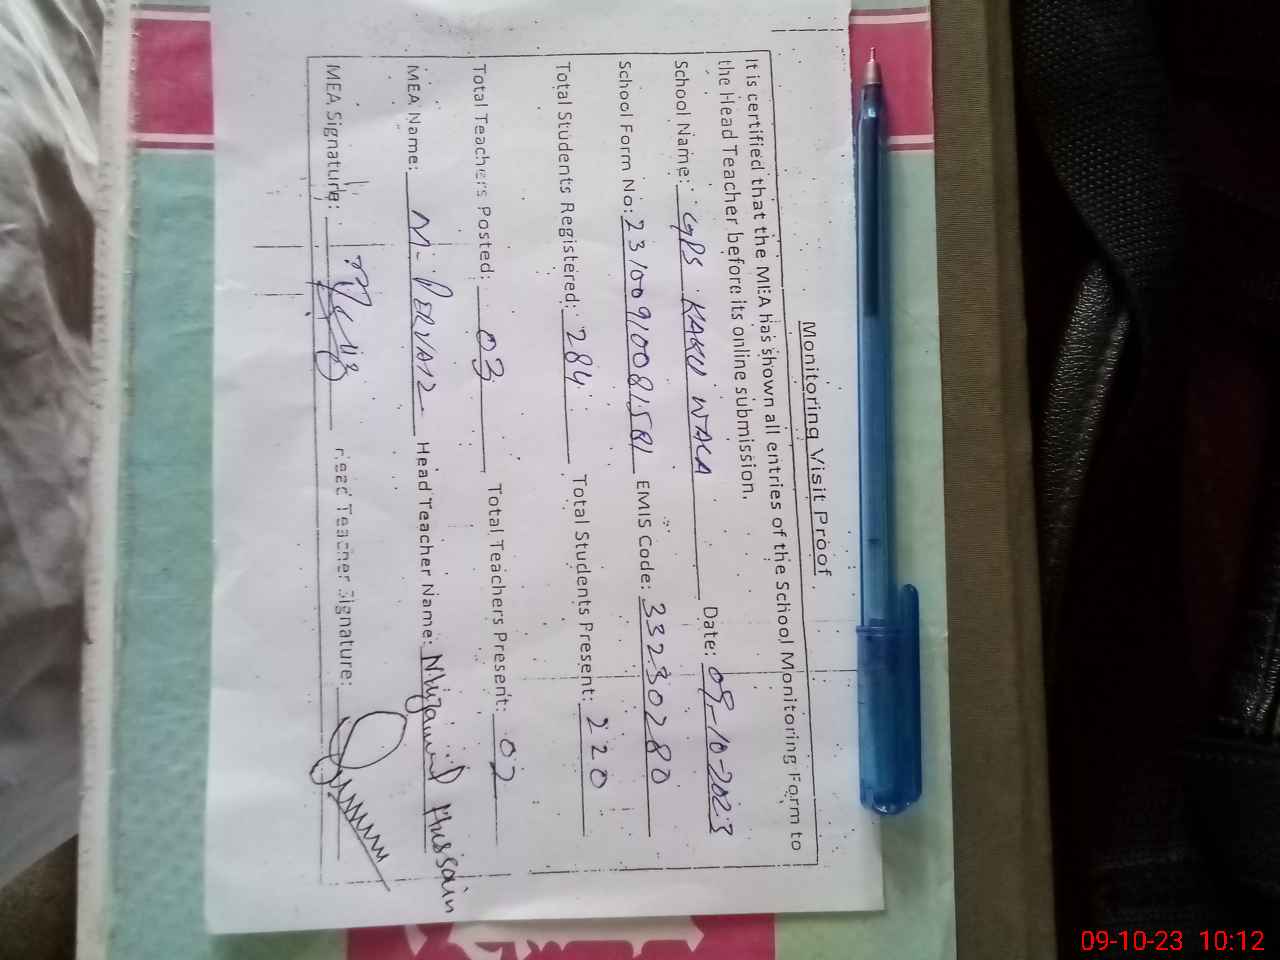 Monitoring Visit Proof
It is certified that the MEA has shown all entries of the School Monitoring Form to
the Head Teacher before its online submission.
School Name: GPS KAKU WALA Date: 09-10-2023
School Form No: EMIS Code: 33230280
Total Students Registered: 284 Total Students Present: 220
Total Teachers Posted: 03 Total Teachers Present: 02
MEA Name: M. PERVAIZ Head Teacher Name: Hussain
MEA Signature: Head Teacher Signature:
09-10-23 10:12